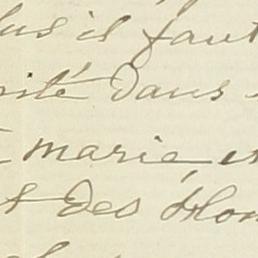 lus il faut
rité dans
marie, et
t des Hom